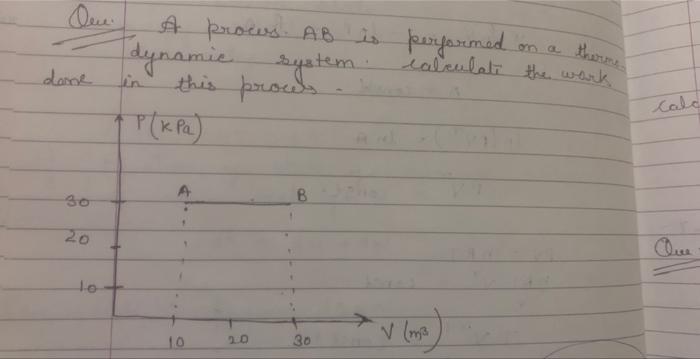 Que. A process AB is performed on a thermo
dynamic system. calculate the work
done in this process.
calc
P (KPa)
A B
30
20
Que.
10
V (m3)
10 20 30